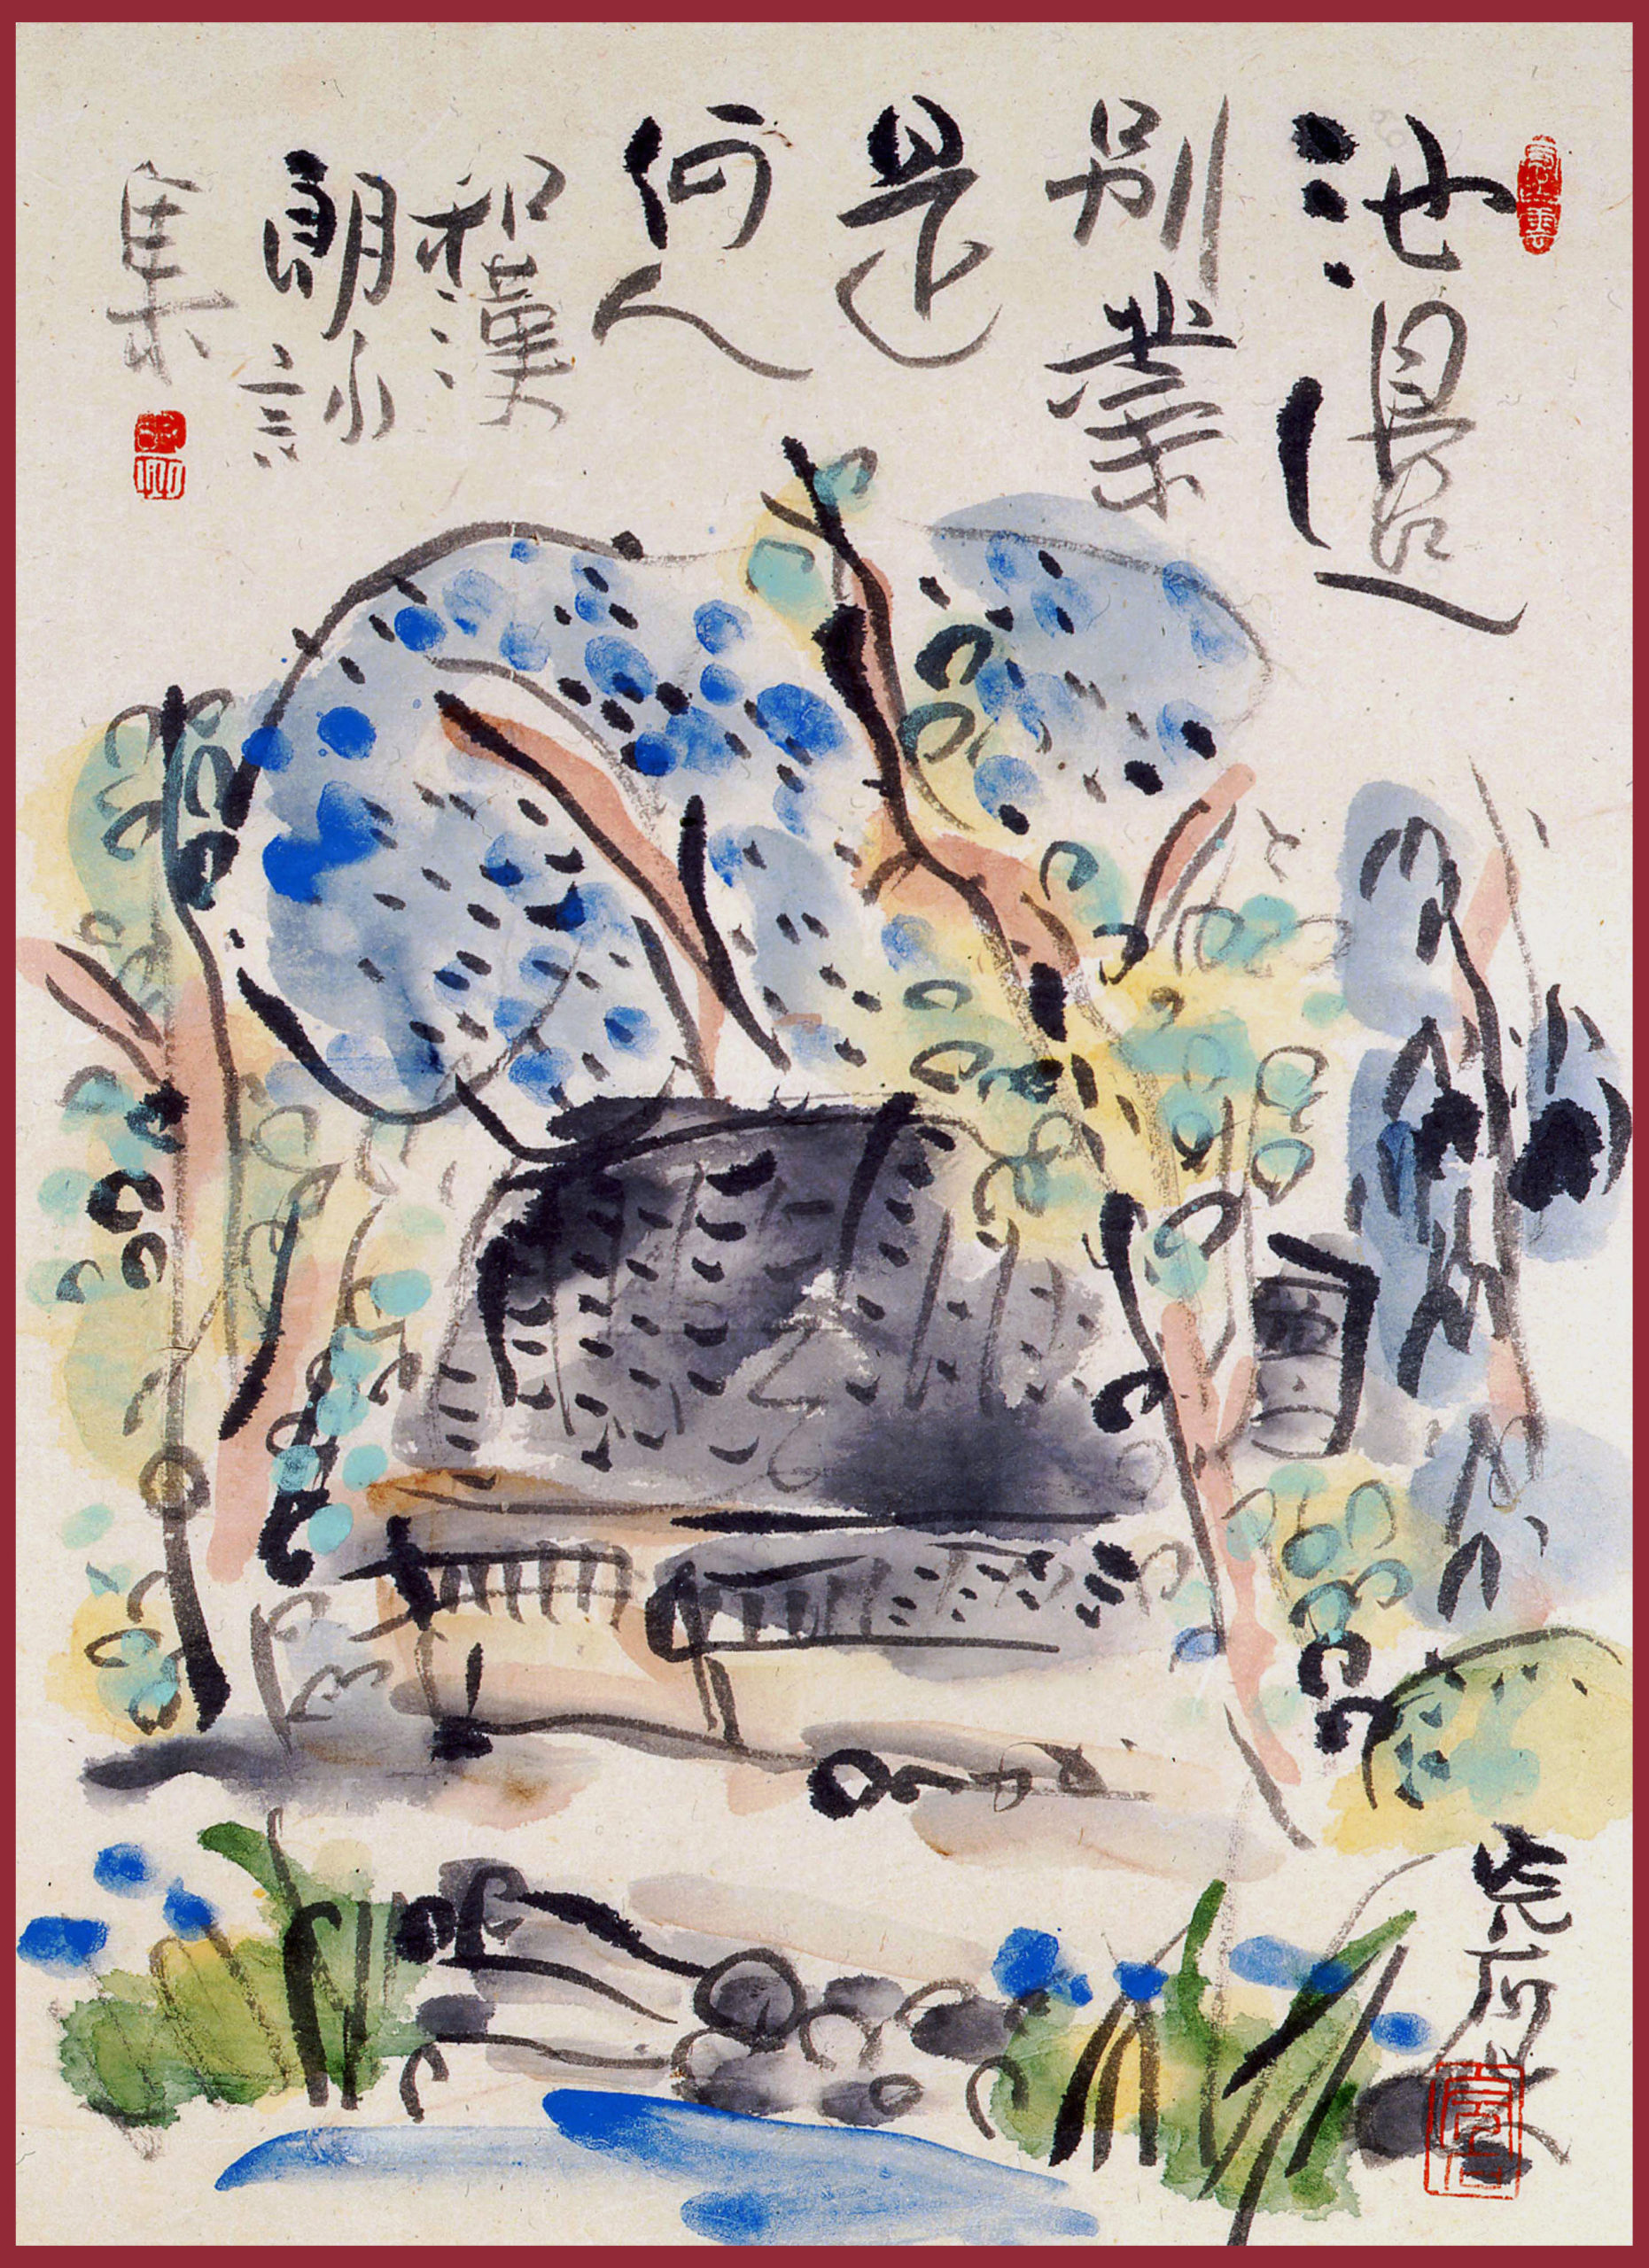 池邊
別業
是
何人
和漢
朗詠
集